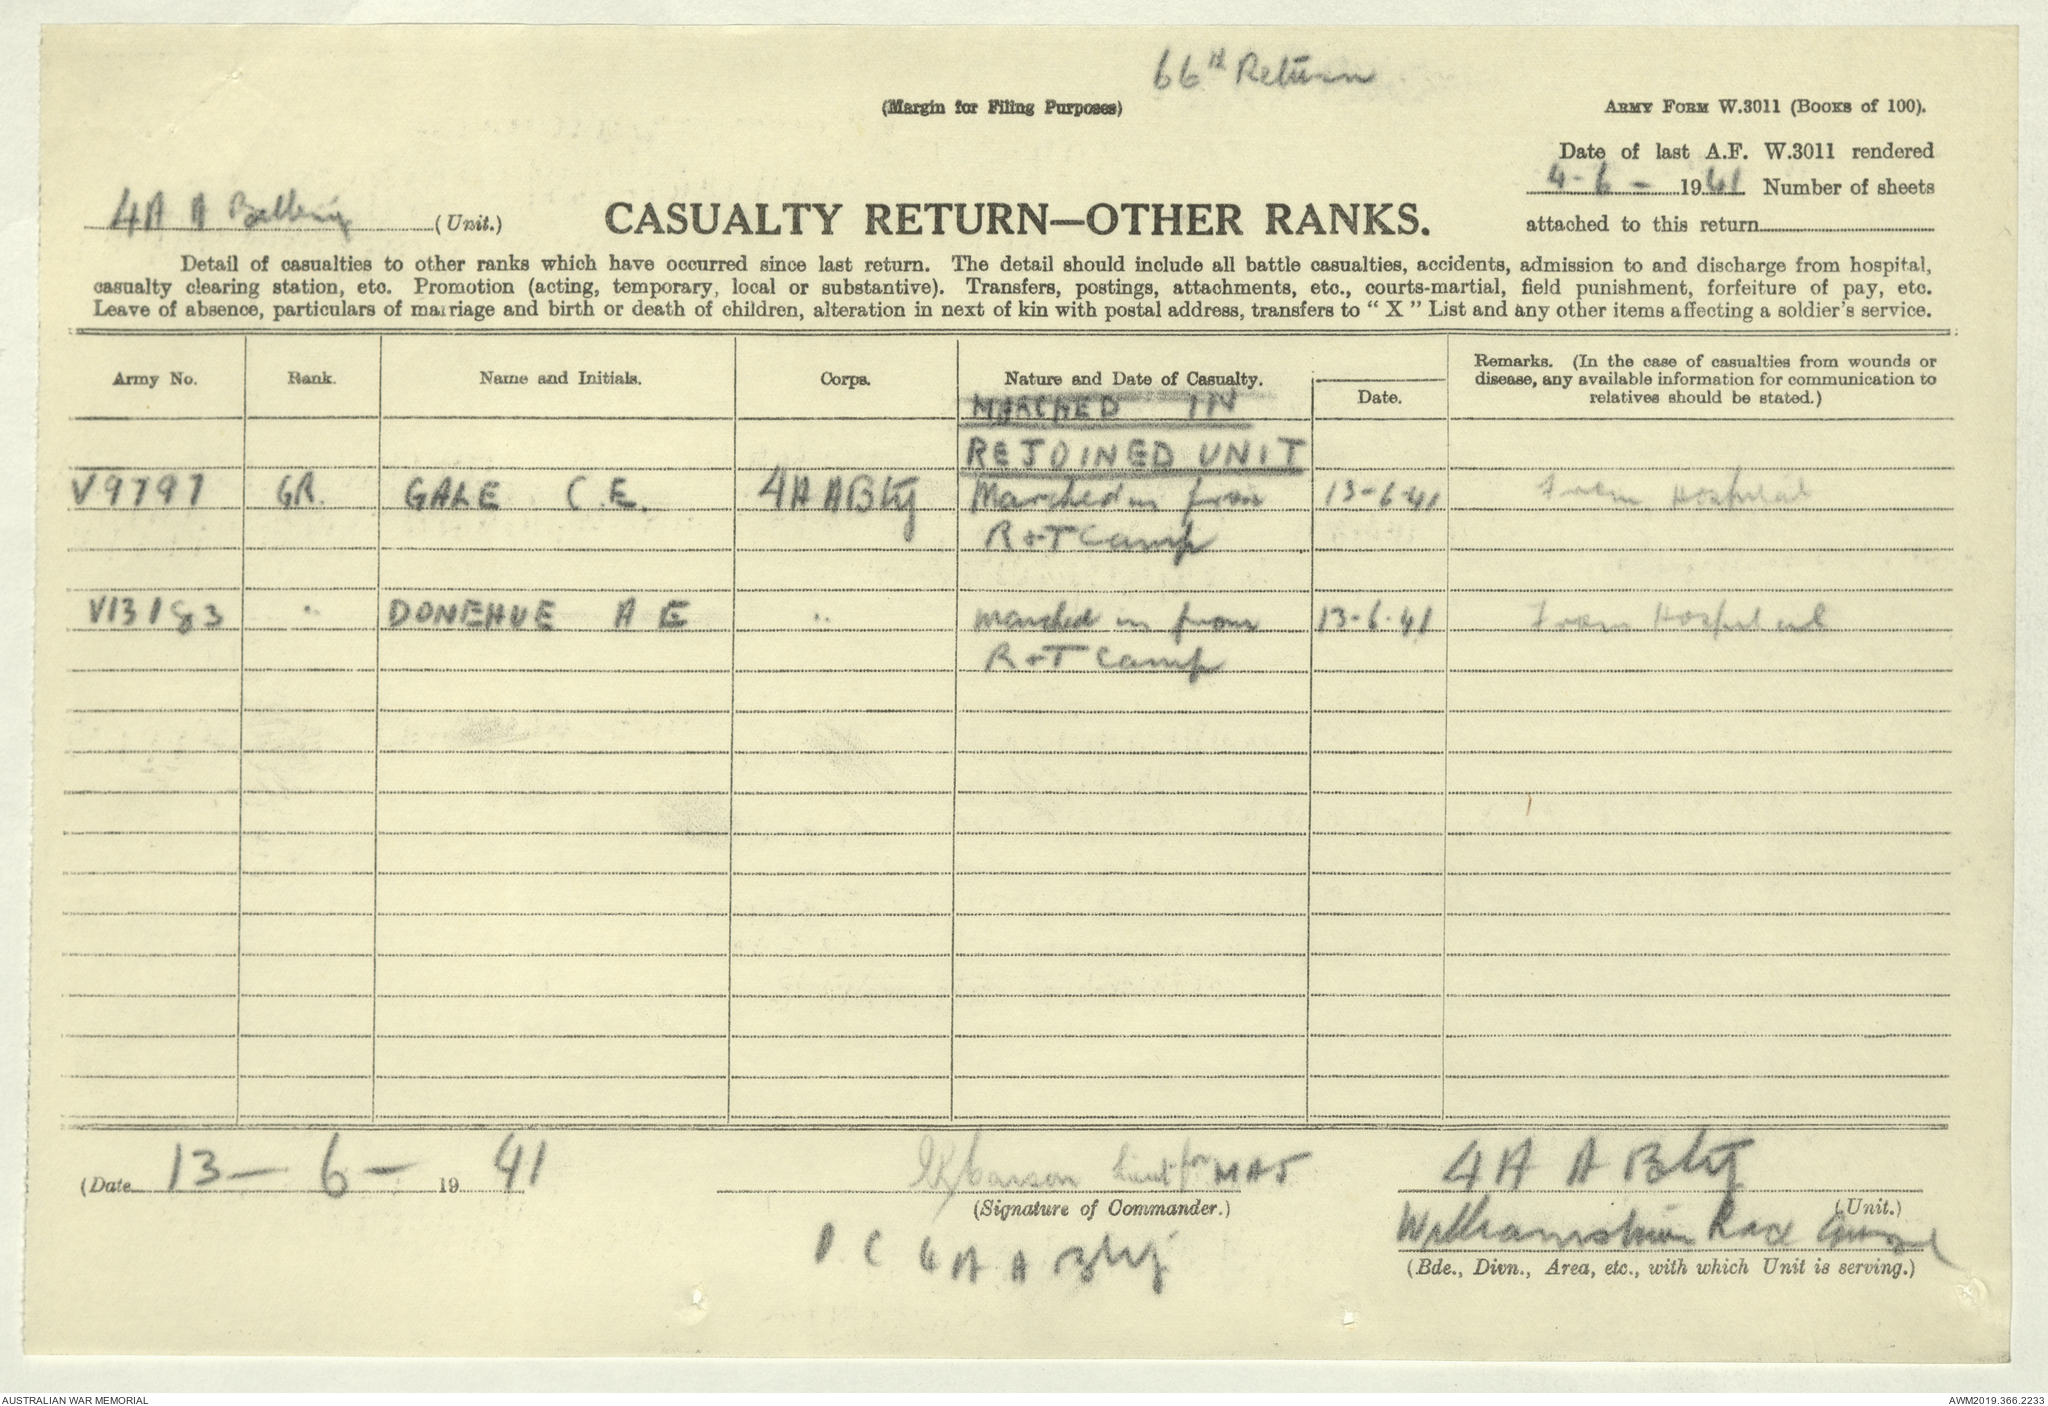 66th Return
(Margin for Filing Purposes)
ARMY FORM W.3011 (Books of 100).
Date of last A.F. W.3011 rendered
4-6- 1941 Number of sheets
attached to this return
4 A A Battery (Unit.)
CASUALTY RETURN—OTHER RANKS.
Detail of casualties to other ranks which have occurred since last return. The detail should include all battle casualties, accidents, admission to and discharge from hospital,
casualty clearing station, etc. Promotion (acting, temporary, local or substantive). Transfers, postings, attachments, etc., courts-martial, field punishment, forfeiture of pay, etc.
Leave of absence, particulars of marriage and birth or death of children, alteration in next of kin with postal address, transfers to "X" List and any other items affecting a soldier's service.
Army No. Rank. Name and Initials. Corps. Nature and Date of Casualty. Date. Remarks. (In the case of casualties from wounds or
disease, any available information for communication to
relatives should be stated.)
MARCHED IN
REJOINED UNIT
V9797 GR. GALE C.E. 4 A A Bty Marched in from 13-6-41 From Hospital
R+T Camp
V13183 " DONEHUE A E " marched in from 13-6-41 From Hospital
R+T Camp
(Date 13- 6- 1941
Carson Lieut for MAJ
(Signature of Commander.)
O C 4 A A Bty
4 A A Bty
(Unit.)
Williamstown Race Course
(Bde., Divn., Area, etc., with which Unit is serving.)
AUSTRALIAN WAR MEMORIAL
AWM2019.366.2233